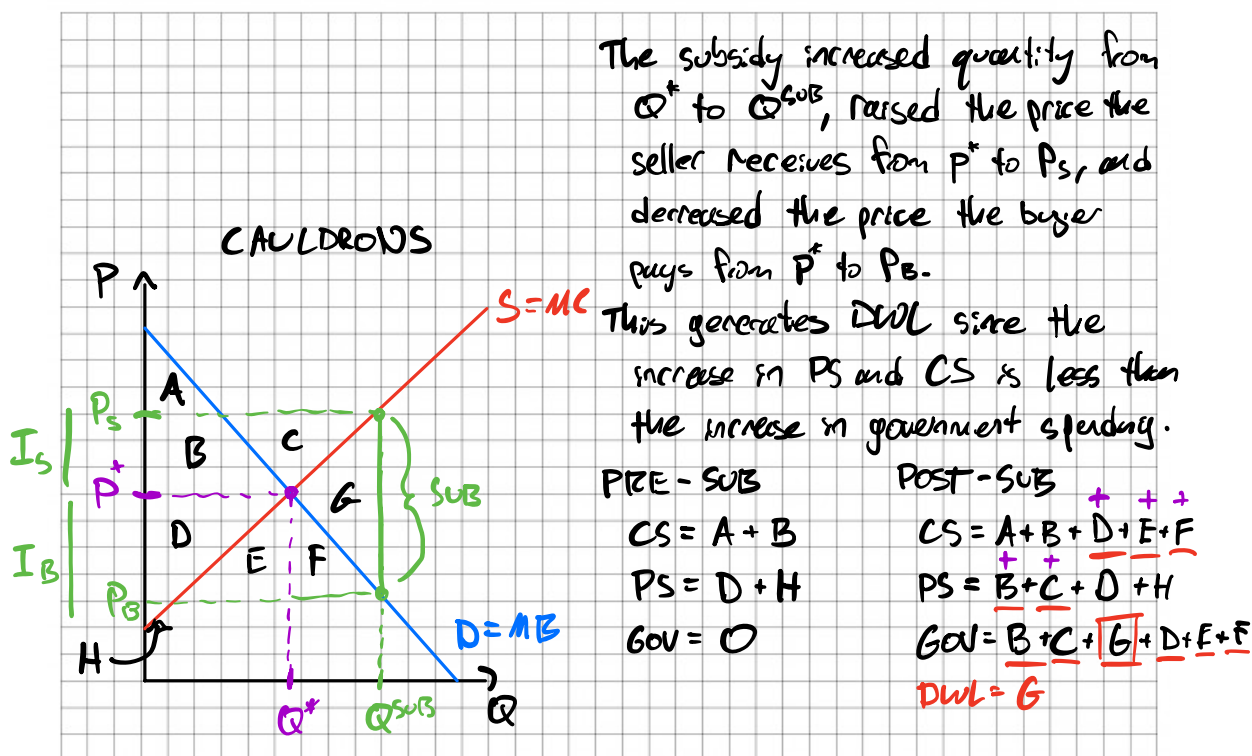 The subsidy increased quantity from
Q* to Q^SUB, raised the price the
seller receives from P* to P_S, and
decreased the price the buyer
pays from P* to P_B.
This generates DWL since the
increase in PS and CS is less than
the increase in government spending.
CAULDRONS
P
S=MC
A
P_S
B
C
I_S
P*
G
SUB
D
E
F
I_B
P_B
D=MB
H
Q*
Q^SUB
Q
PRE-SUB
CS = A + B
PS = D + H
GOV = 0
POST-SUB
+ + +
CS = A + B + D + E + F
+ +
PS = B + C + D + H
GOV = B + C + G + D + E + F
DWL = G